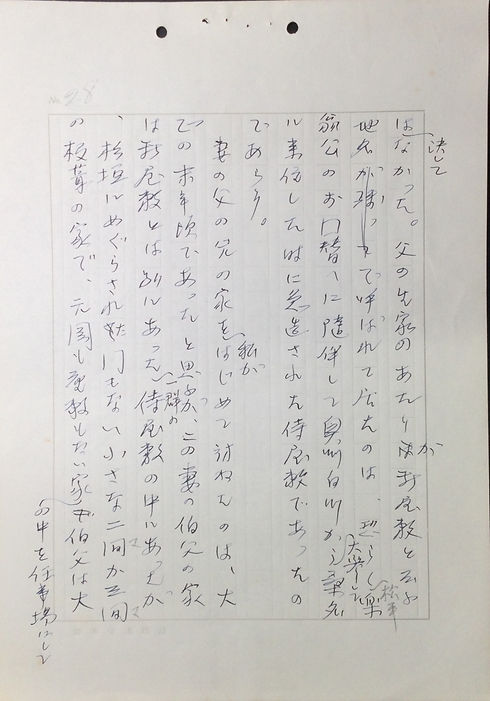 No. 28
決して
はなかった。父の生家のあたりが新屋敷と云ふ
地名で呼ばれて居たのは、恐らく楽
翁公のお国替へに随伴して奥州白川から桑名
松平
に来住した時に急造された侍屋敷であったの
であらう。
私が
妻の父の兄の家をはじめて訪ねたのは、大
正の末年頃であったと思ふが、この妻の伯父の家
一群の
は新屋敷とは別にあった侍屋敷の中にあったが
、松垣にめぐらされた門もない小さな二間か三間
の板葺の家で、玄関も座敷もない家
伯父は大
の中を仕事場にして